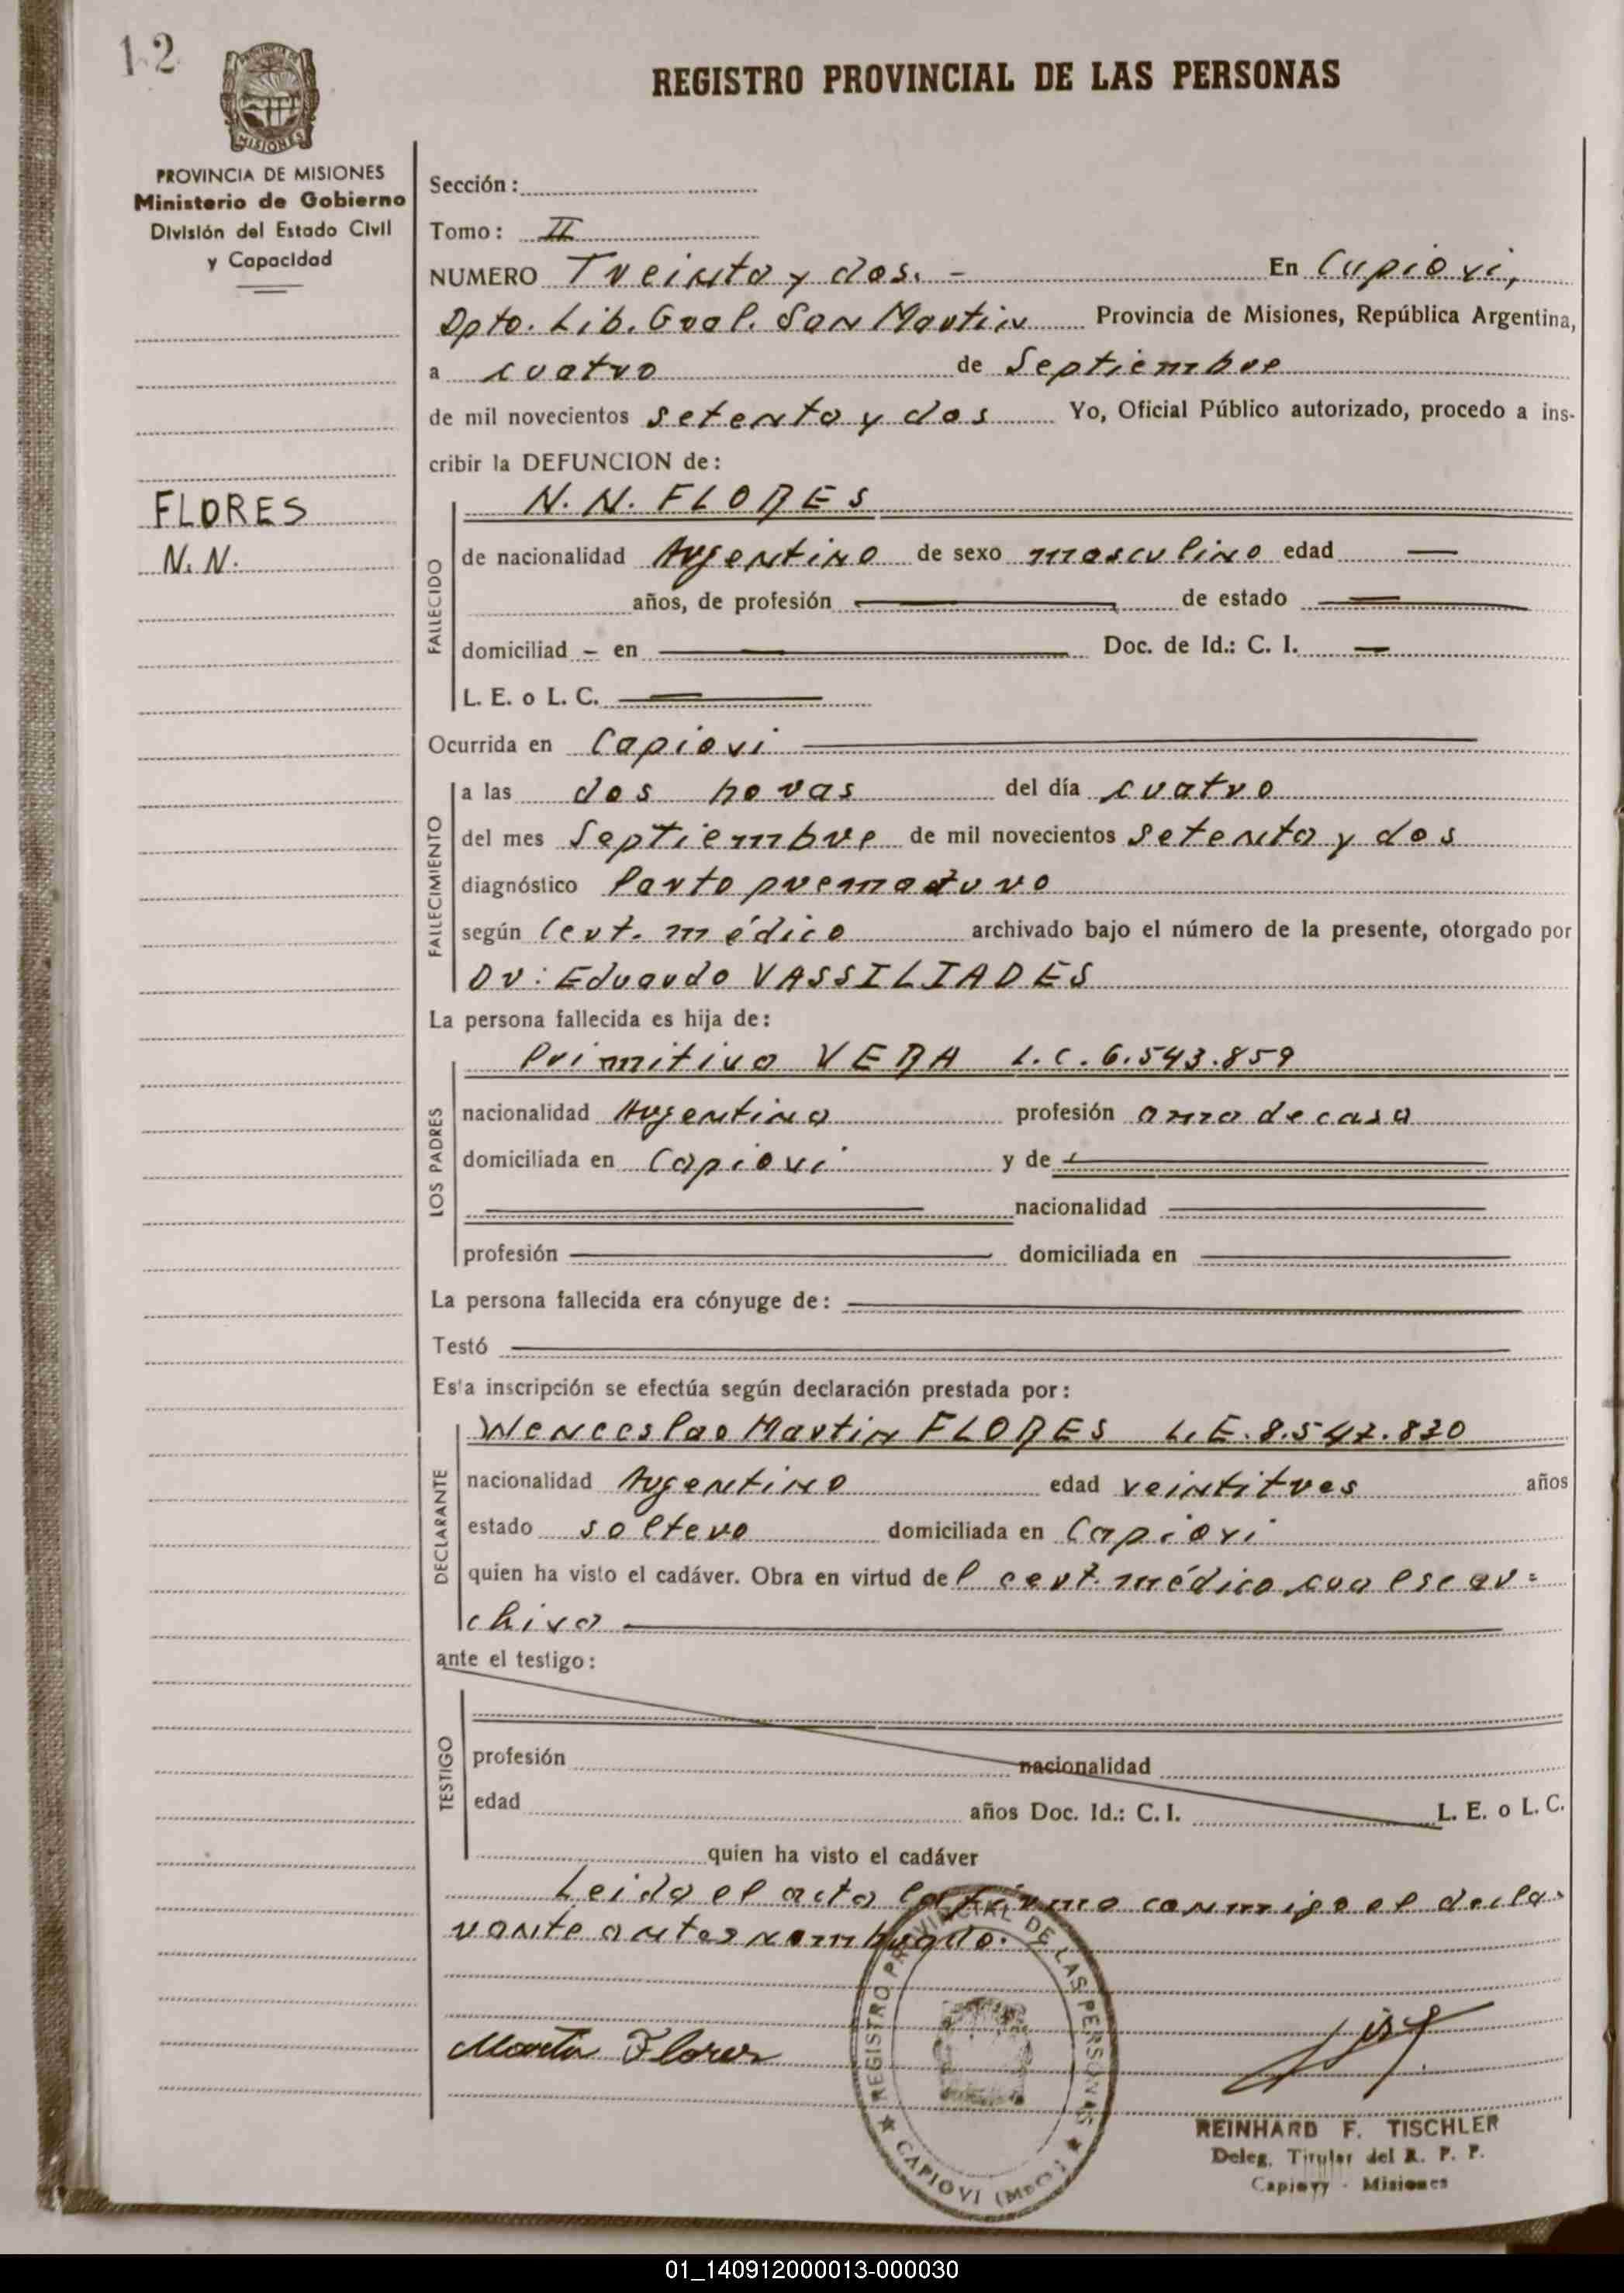 12
REGISTRO PROVINCIAL DE LAS PERSONAS
MISIONES
PROVINCIA DE MISIONES
Ministerio de Gobierno
División del Estado Civil
y Capacidad
FLORES
N. N.
Sección:
Tomo: II
NUMERO Treinta y dos. - En Capiovi,
Dpto. Lib. Gral. San Martin Provincia de Misiones, República Argentina,
a cuatro de Septiembre
de mil novecientos setenta y dos Yo, Oficial Público autorizado, procedo a ins-
cribir la DEFUNCION de:
FALLECIDO
N. N. FLORES
de nacionalidad Argentino de sexo masculino edad —
años, de profesión — de estado —
domiciliad - en — Doc. de Id.: C. I. —
L. E. o L. C. —
Ocurrida en Capiovi —
FALLECIMIENTO
a las dos horas del día cuatro
del mes Septiembre de mil novecientos setenta y dos
diagnóstico Parto prematuro
según Cert. médico archivado bajo el número de la presente, otorgado por
Dr: Eduardo VASSILIADES
La persona fallecida es hija de:
LOS PADRES
Primitiva VERA L.C. 6.543.859
nacionalidad Argentina profesión ama de casa
domiciliada en Capiovi y de —
— nacionalidad —
profesión — domiciliada en —
La persona fallecida era cónyuge de: —
Testó —
Esta inscripción se efectúa según declaración prestada por:
DECLARANTE
Wenceslao Martin FLORES L.E. 8.547.830
nacionalidad Argentino edad veintitres años
estado soltero domiciliada en Capiovi
quien ha visto el cadáver. Obra en virtud del cert. médico cual se ar=
chiva —
ante el testigo:
TESTIGO
profesión nacionalidad
edad años Doc. Id.: C. I. L. E. o L. C.
quien ha visto el cadáver
Leida el acta la firma conmigo el decla-
rante antes nombrado.
Martin Flores
REGISTRO PROVINCIAL DE LAS PERSONAS
CAPIOVI (Mnes.)
REINHARD F. TISCHLER
Deleg. Titular del R. P. P.
Capiovy - Misiones
01_140912000013-000030